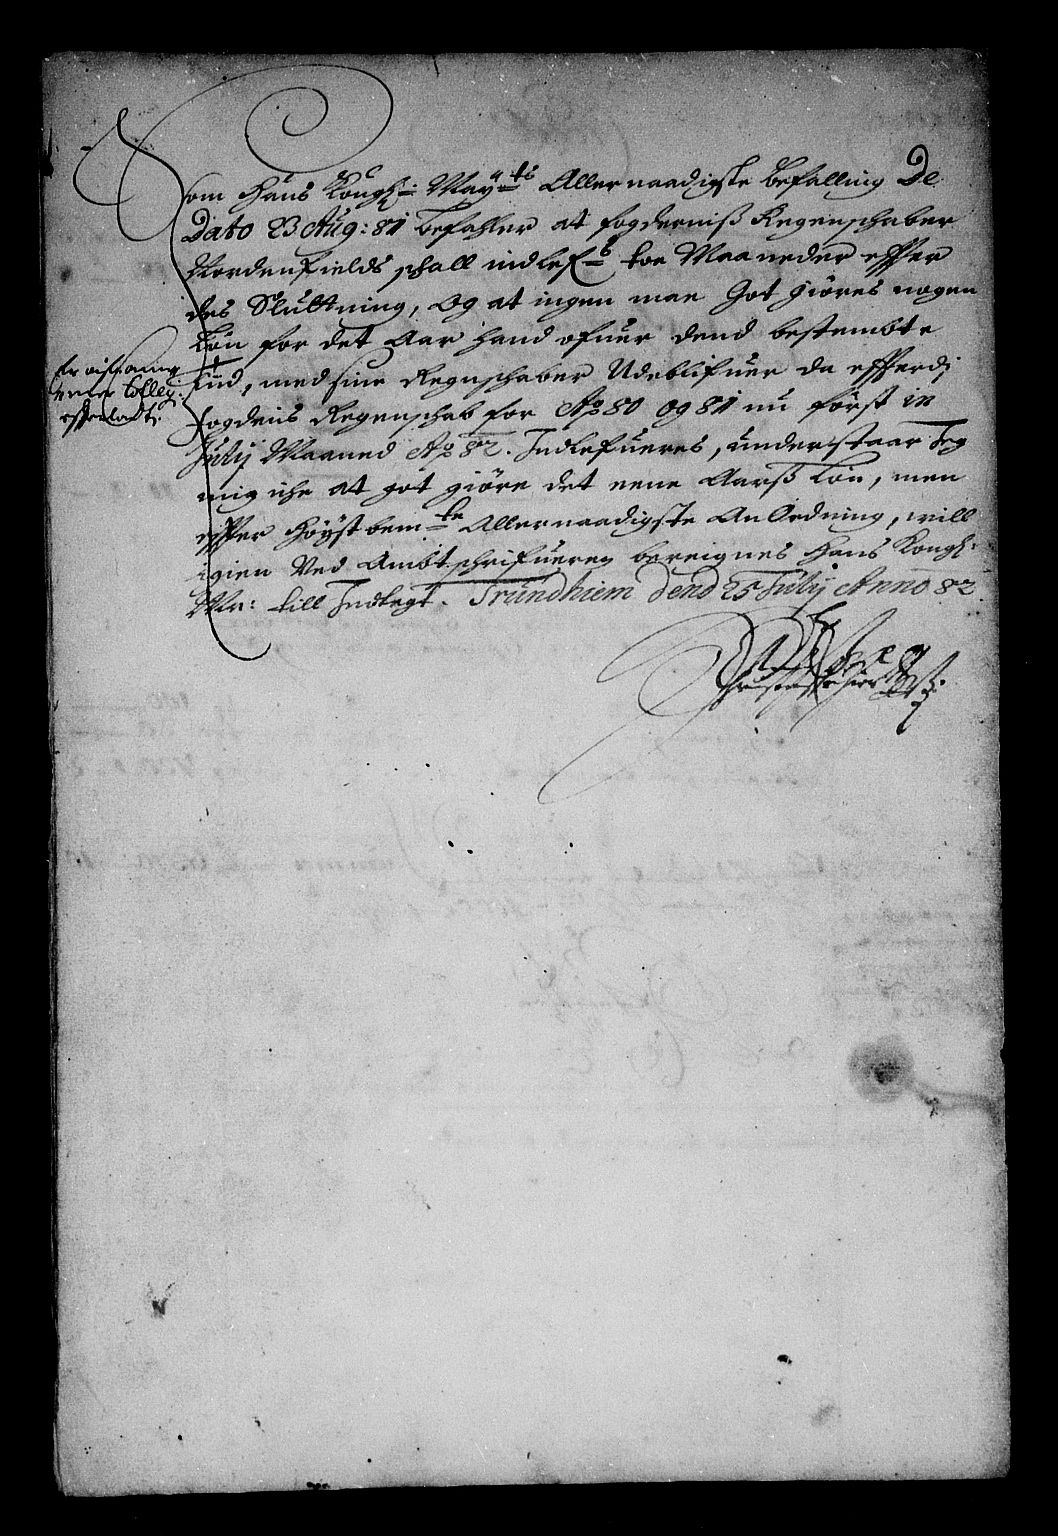 Som Hans Kongl: May:ts Allernaadigste befalling De
Dato 23 Aug: 81 befahler at fogderniß Regenschaber
Nordenfields schall indlef:s toe Maaneder effter
des Sluttning, og at ingen maa Got giöres nogen
Lön for det Aar hand ofuer dend bestembte
tiid, med sine Regnschaber Udeblifuer da effterdj
fogdens Regenschab for Ao 80 og 81 nu först in
July Maaned Ao 82. Indlefueres, understaar Jeg
mig iche at got giöre det eene Aarß Lön, men
effter höystbem:te Allernaadigste Anledning, will
igien Ved Ambtschrifueren bereignes Hans Kongl:
My: till Indtegt. Trundhiem Dend 25 July Anno 82